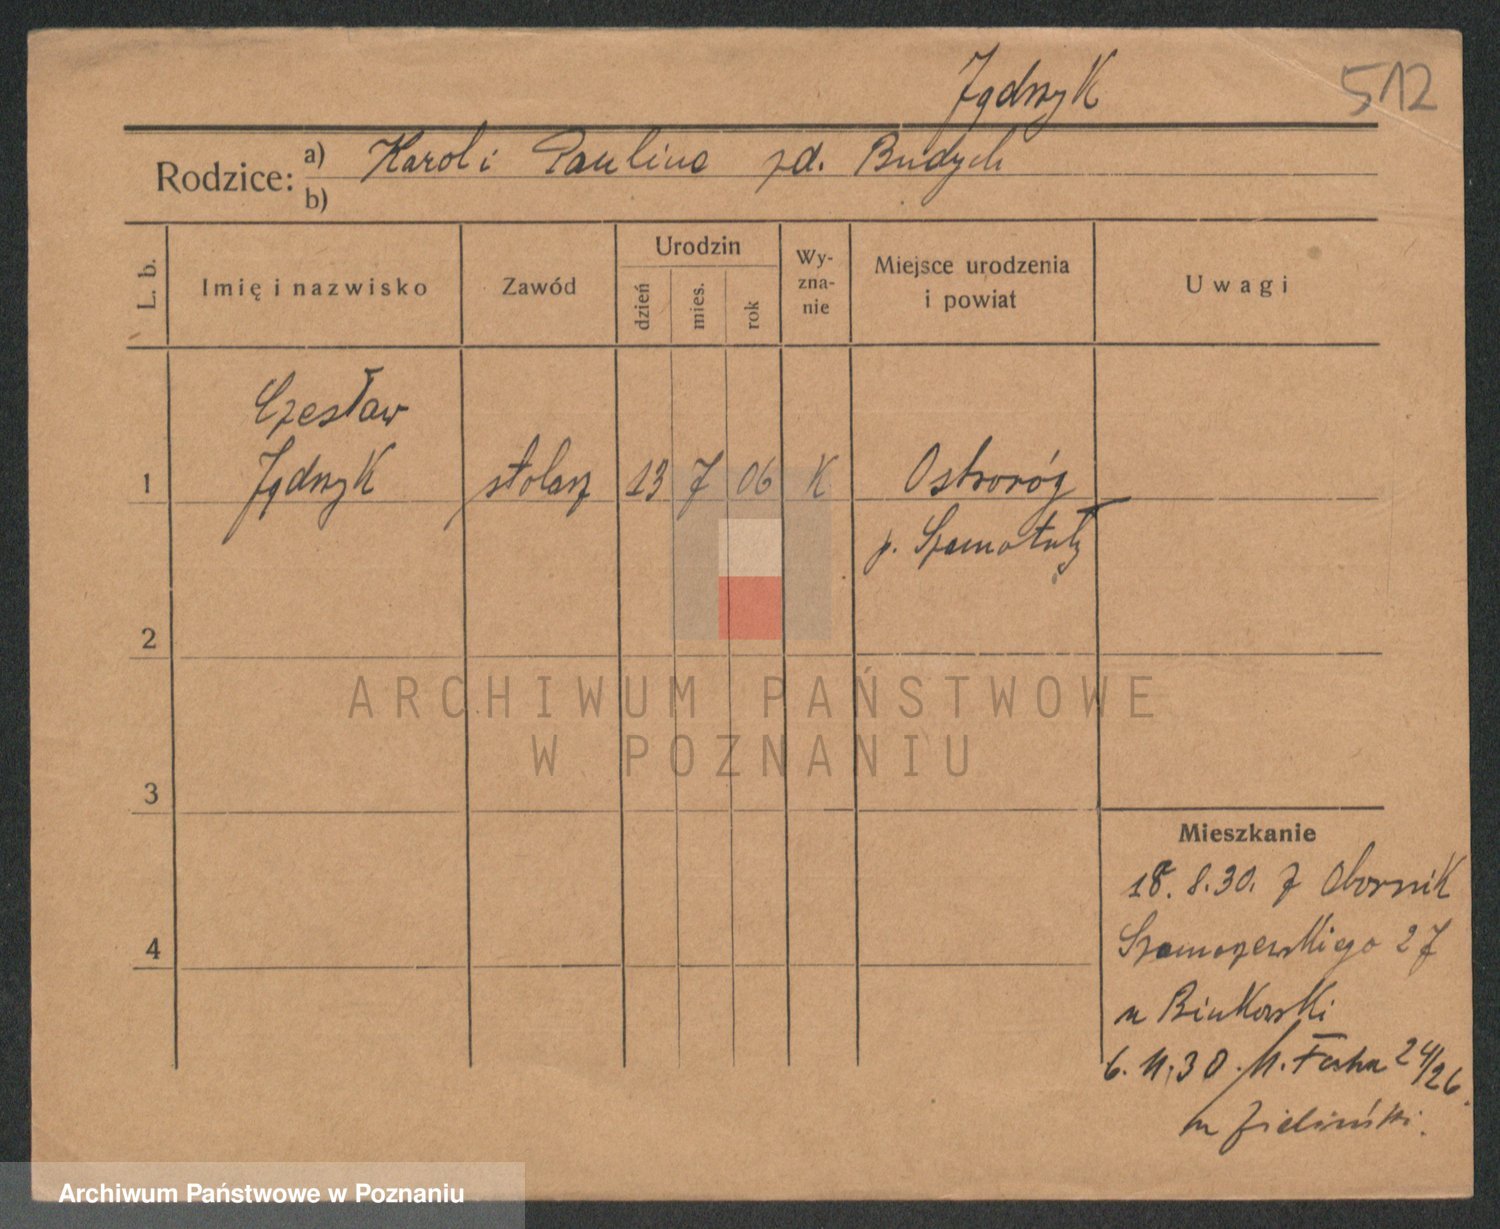 Jądrzyk
512
Rodzice:
a) Karol i Paulina zd. Budych
b)
L. b.
Imię i nazwisko
Zawód
Urodzin
dzień
mies.
rok
Wy-
zna-
nie
Miejsce urodzenia
i powiat
Uwagi
Czesław
1 Jądrzyk stolarz 13 7 06 K Ostroróg
p. Szamotuły
2
ARCHIWUM PAŃSTWOWE
W POZNANIU
3
Mieszkanie
18. 8. 30. z Obornik
4
Szamarzewskiego 27
u Binkowski
6. 11. 30. M. Focha 24/26.
u Zieliński.
Archiwum Państwowe w Poznaniu